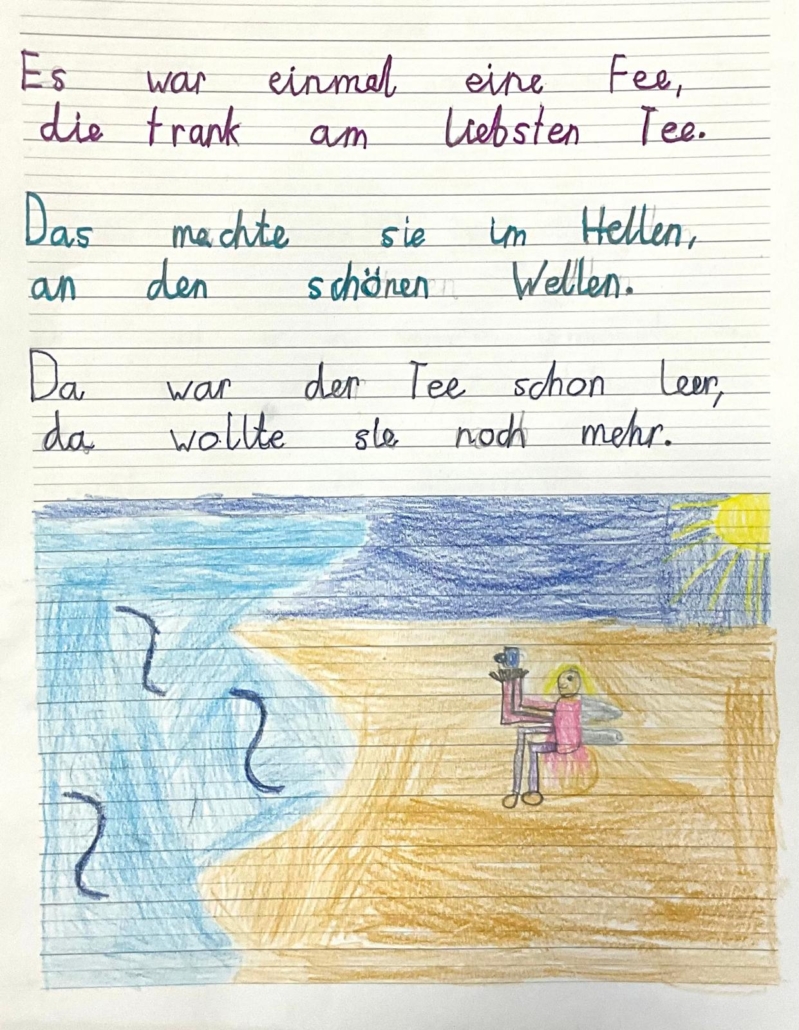 Es war einmal eine Fee,
die trank am liebsten Tee.
Das machte sie im Hellen,
an den schönen Wellen.
Da war der Tee schon leer,
da wollte sie noch mehr.